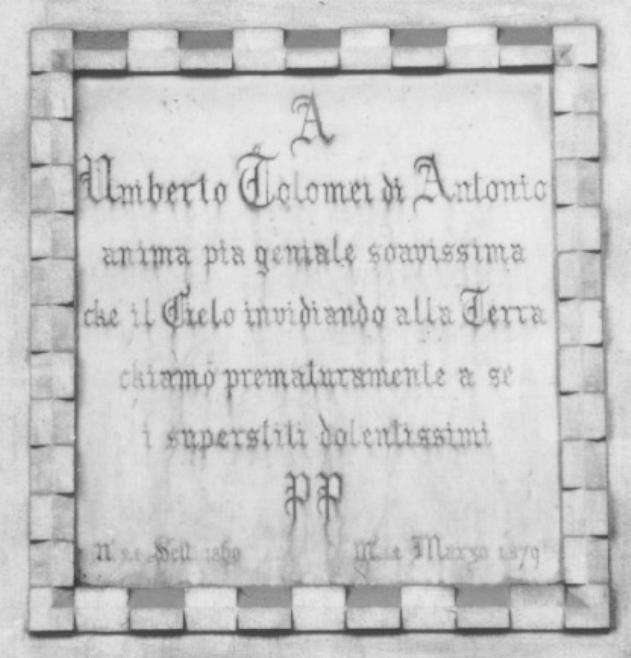 A
Umberto Tolomei di Antonio
anima pia geniale soavissima
che il Cielo invidiando alla Terra
chiamò prematuramente a se
i superstiti dolentissimi
PP
N Sett Marzo 1879